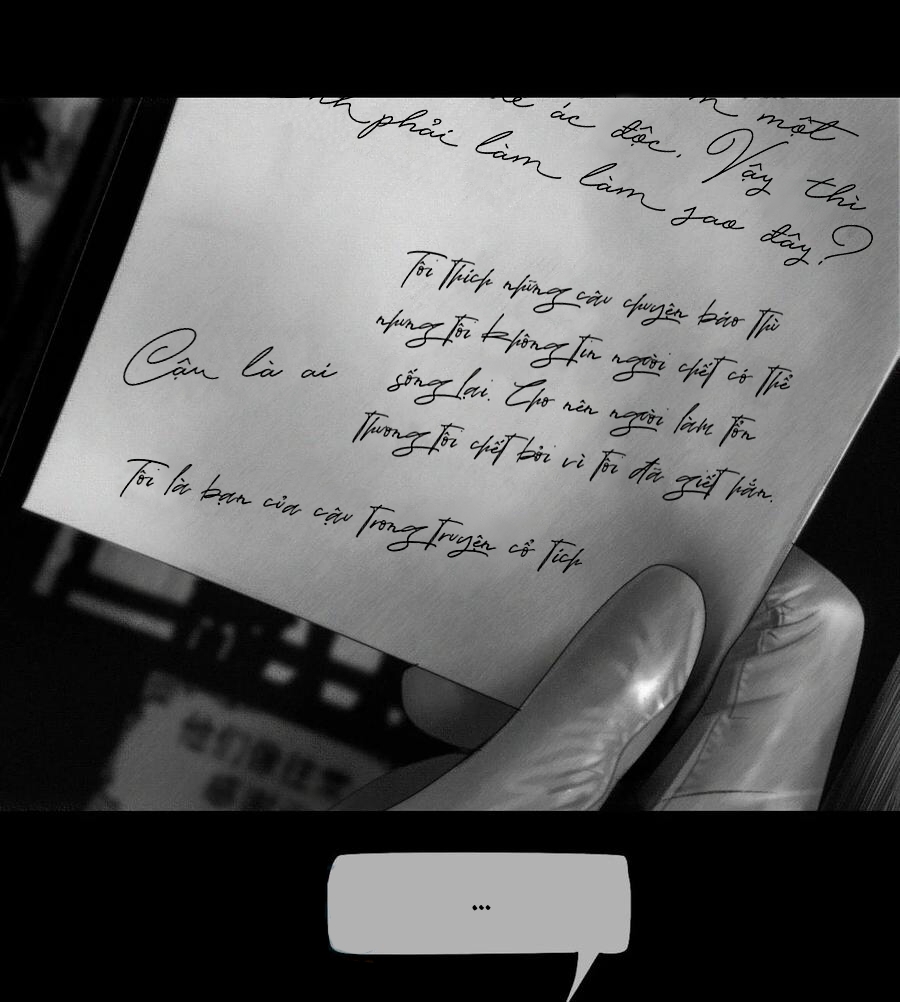 ác độc. Vậy thì
một
phải làm làm sao đây?
Tôi thích những câu chuyện báo thù
nhưng tôi không tin người chết có thể
sống lại. Cho nên người làm tổn
thương tôi chết bởi vì tôi đã giết hắn.
Cậu là ai
Tôi là bạn của cậu trong truyện cổ tích
...